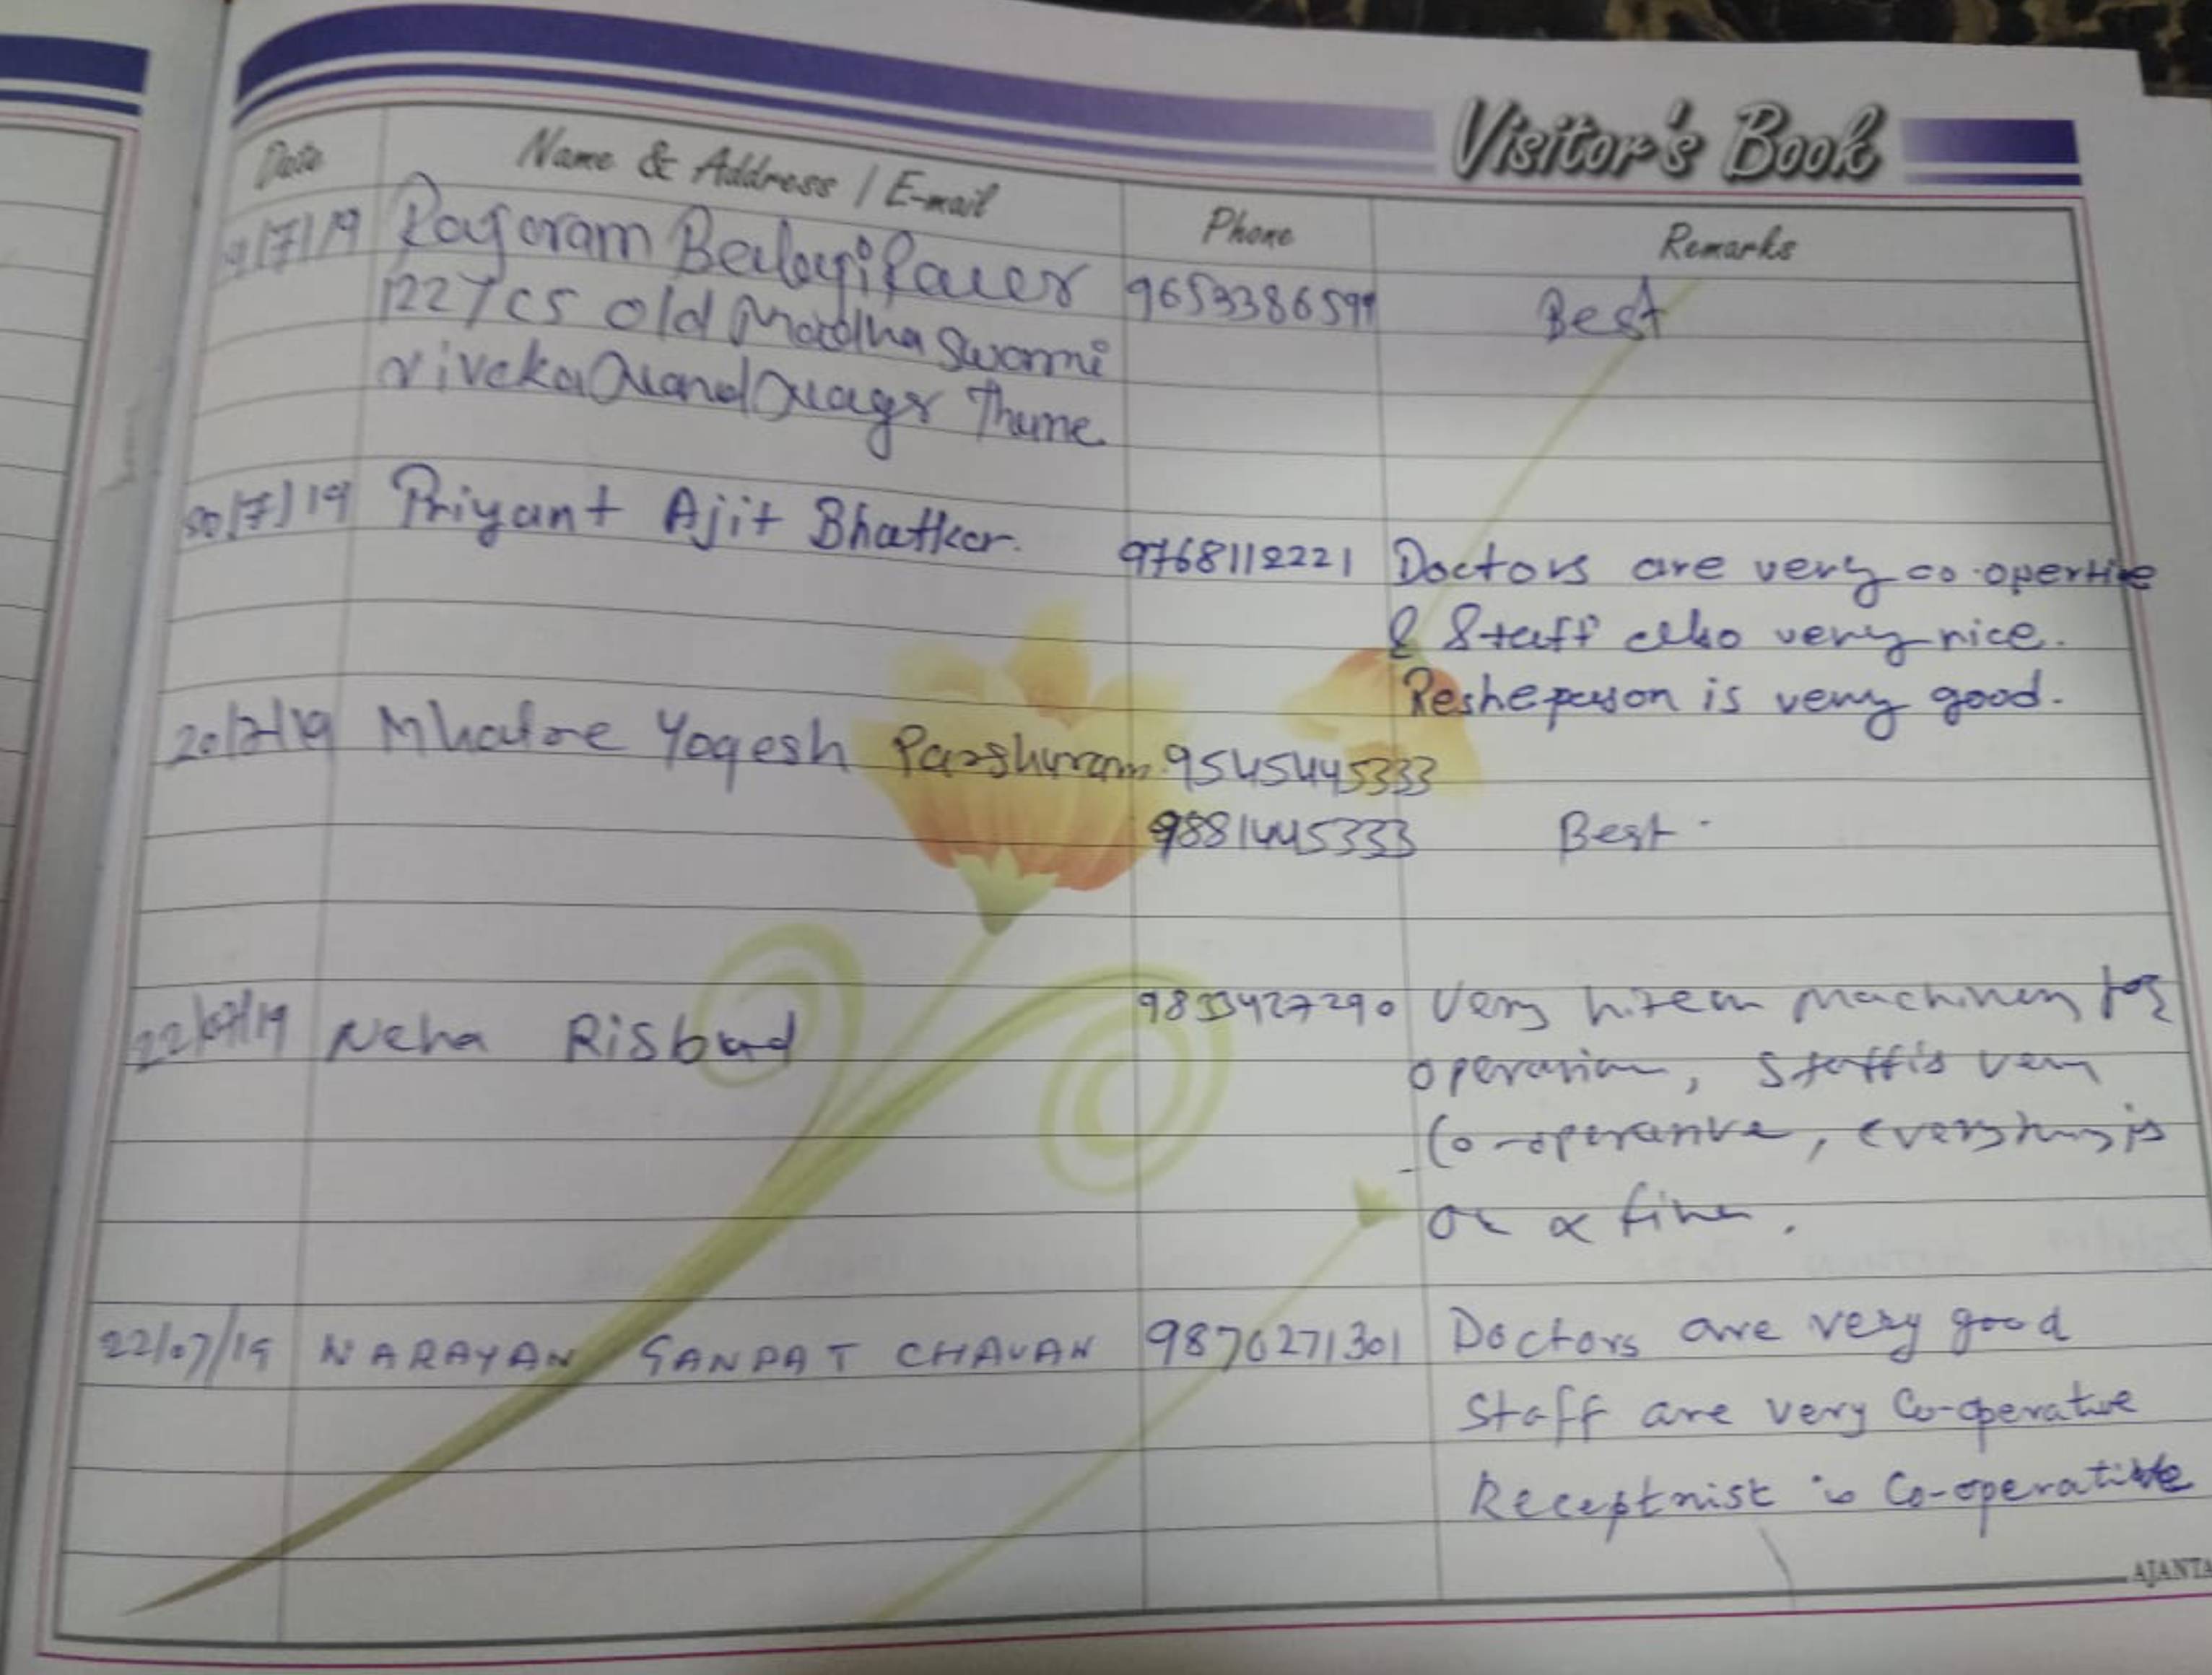 Visitor's Book
Date Name & Address / E-mail Phone Remarks
/7/19 Rajaram Balaji Pawer 9653386599 Best
old Swami
Thane
/7/19 Priyant Ajit Bhatkar. 9768112221 Doctors are very co-opertive
& Staff also very nice.
person is very good.
20/7/19 Mhatre Yogesh Parshuram 9545445333
9881445333 Best
22/07/19 Neha Risbud 9833427290 Very hitech machinery for
operation, Staff is very
Co-operative, everything is
ok & fine.
22/07/19 NARAYAN GANPAT CHAVAN 9870271301 Doctors are very good
Staff are very Co-operative
Receptnist is Co-operative
AJANTA